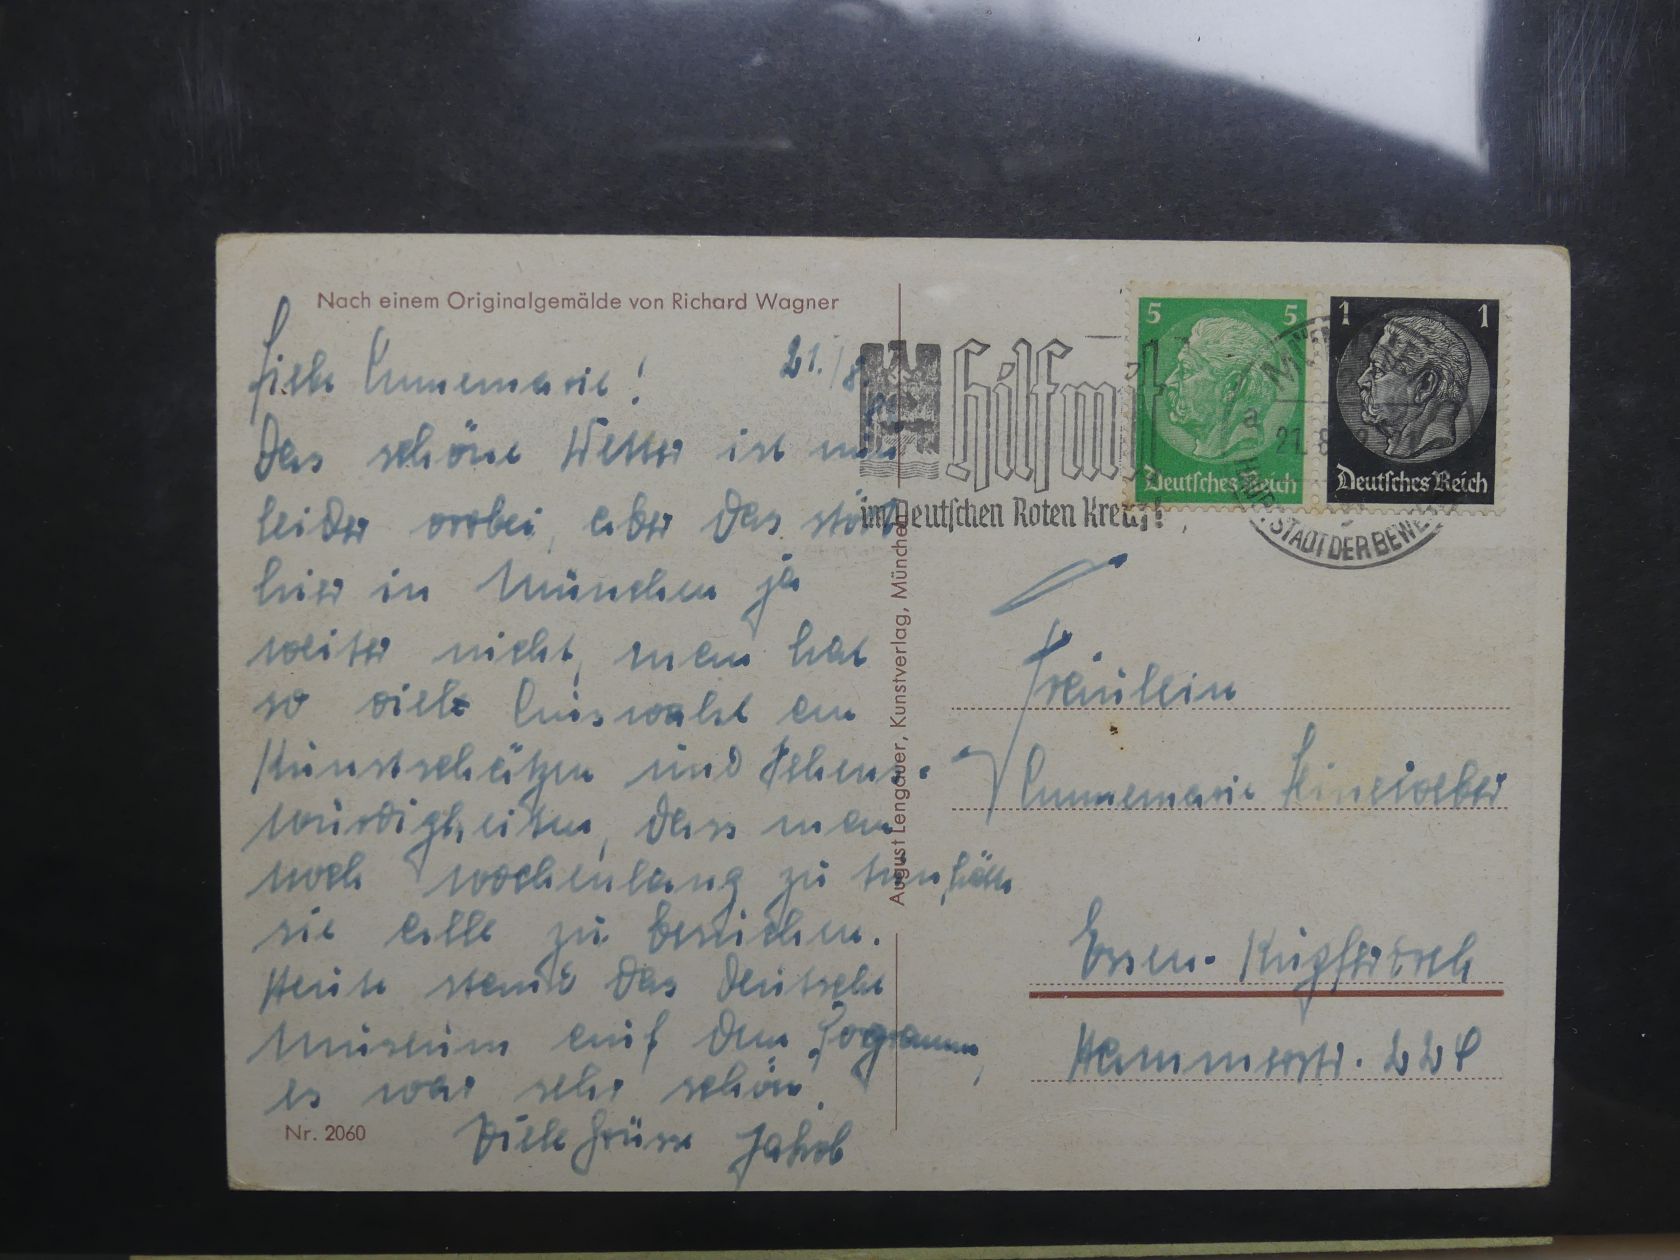 Nach einem Originalgemälde von Richard Wagner
Liebe Annemarie! 21./8.
Das schöne Wetter ist nun
leider vorbei, aber das stört
hier in München ja
weiter nicht, man hat
so viele Auswahl an
Kunstschätzen und Sehens-
würdigkeiten, dass man
noch wochenlang zu tun hätte
sie alle zu besuchen.
Heute stand das Deutsche
Museum auf dem Programm,
es war sehr schön.
Viele Grüsse Jakob
Nr. 2060
August Lengauer, Kunstverlag, München
Hilf mit
im Deutschen Roten Kreuz!
5 5
Deutsches Reich
1 1
Deutsches Reich
a
21.8
STADT DER BEWE
Fräulein
Annemarie Leineweber
Essen-Kupferdreh
Hammerstr. 224